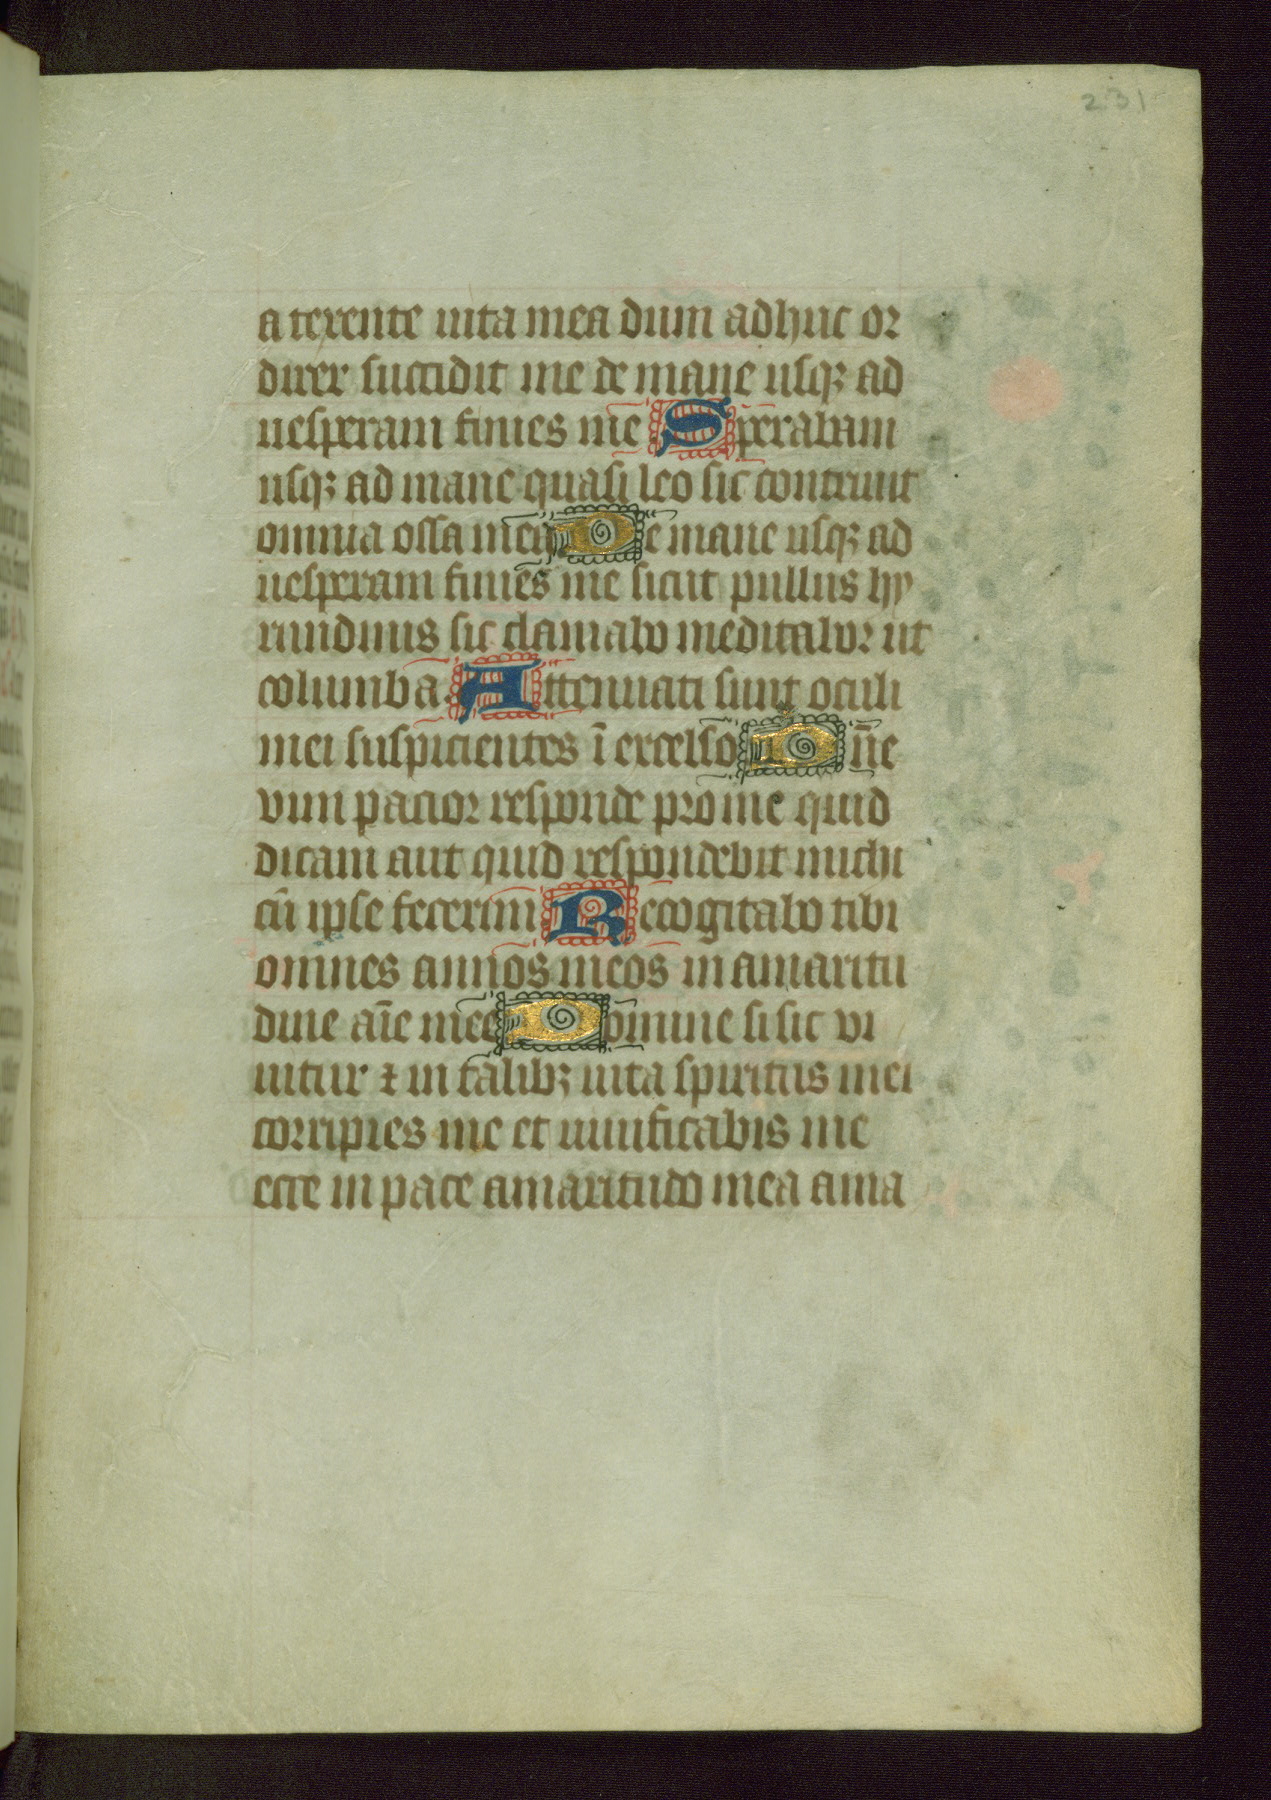 231
a terente uita mea dum adhuc or
direr succidit me de mane usqꝫ ad
uesperam finies me Sperabam
usqꝫ ad mane quasi leo sic contriuit
omnia ossa mea De mane usqꝫ ad
uesperam finies me sicut pullus hy
rundinis sic clamabo meditabor ut
columba Attenuati sunt oculi
mei suspicientes ī excelso Dn̄e
vim pacior responde pro me quid
dicam aut quid respondebit michi
cū ipse fecerim Recogitabo tibi
omnes annos meos in amaritu
dine aīe mee Domine si sic vi
uitur ⁊ in talibꝫ uita spiritus mei
corripies me et uiuificabis me
ecce in pace amaritudo mea ama